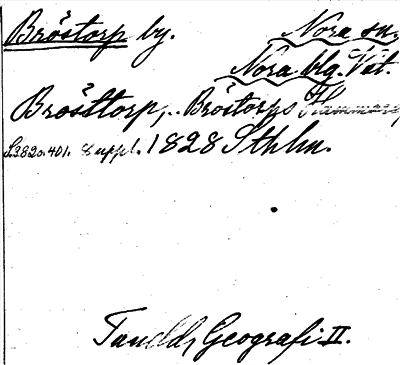 Bröstorp by. Nora sn.
Nora blg. Vät.
Brösttorp, .. Bröstorps
S. 382o. 401. suppl. 1828 Sthlm.
Tunelds Geografi II.